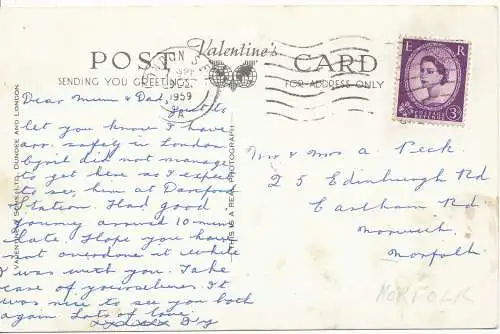 POST Valentine's CARD
SENDING YOU GREETINGS FOR ADDRESS ONLY
1959
E R
3D
Dear Mum & Dad, Just to
let you know I have
arr. safely in London
Cyril did not manage
to get here as I expect
to see him at
Station. Had good
journey around 10 mins
late. Hope you have
not overdone it while
I was with you. Take
care of yourselves. It
was nice to see you both
again. Lots of love.
xxxxxx
Mr & Mrs A. Peck
25 Edinburgh Rd
Eastham Rd.
Norwich.
Norfolk
NORFOLK
VALENTINE & SONS LTD., DUNDEE AND LONDON
THIS IS A REAL PHOTOGRAPH